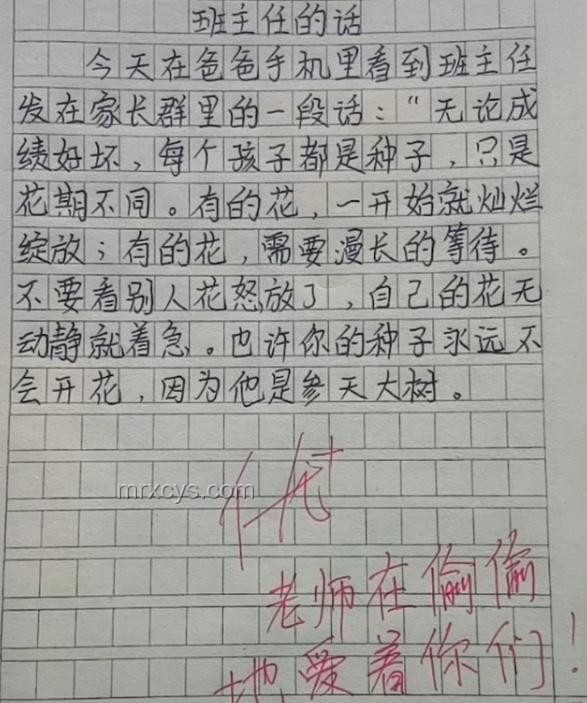 班主任的话
今天在爸爸手机里看到班主任
发在家长群里的一段话：“无论成
绩好坏，每个孩子都是种子，只是
花期不同。有的花，一开始就灿烂
绽放；有的花，需要漫长的等待。
不要看别人花怒放了，自己的花无
动静就着急。也许你的种子永远不
会开花，因为他是参天大树。
优+
mrxcys.com
老师在偷偷
地爱着你们！